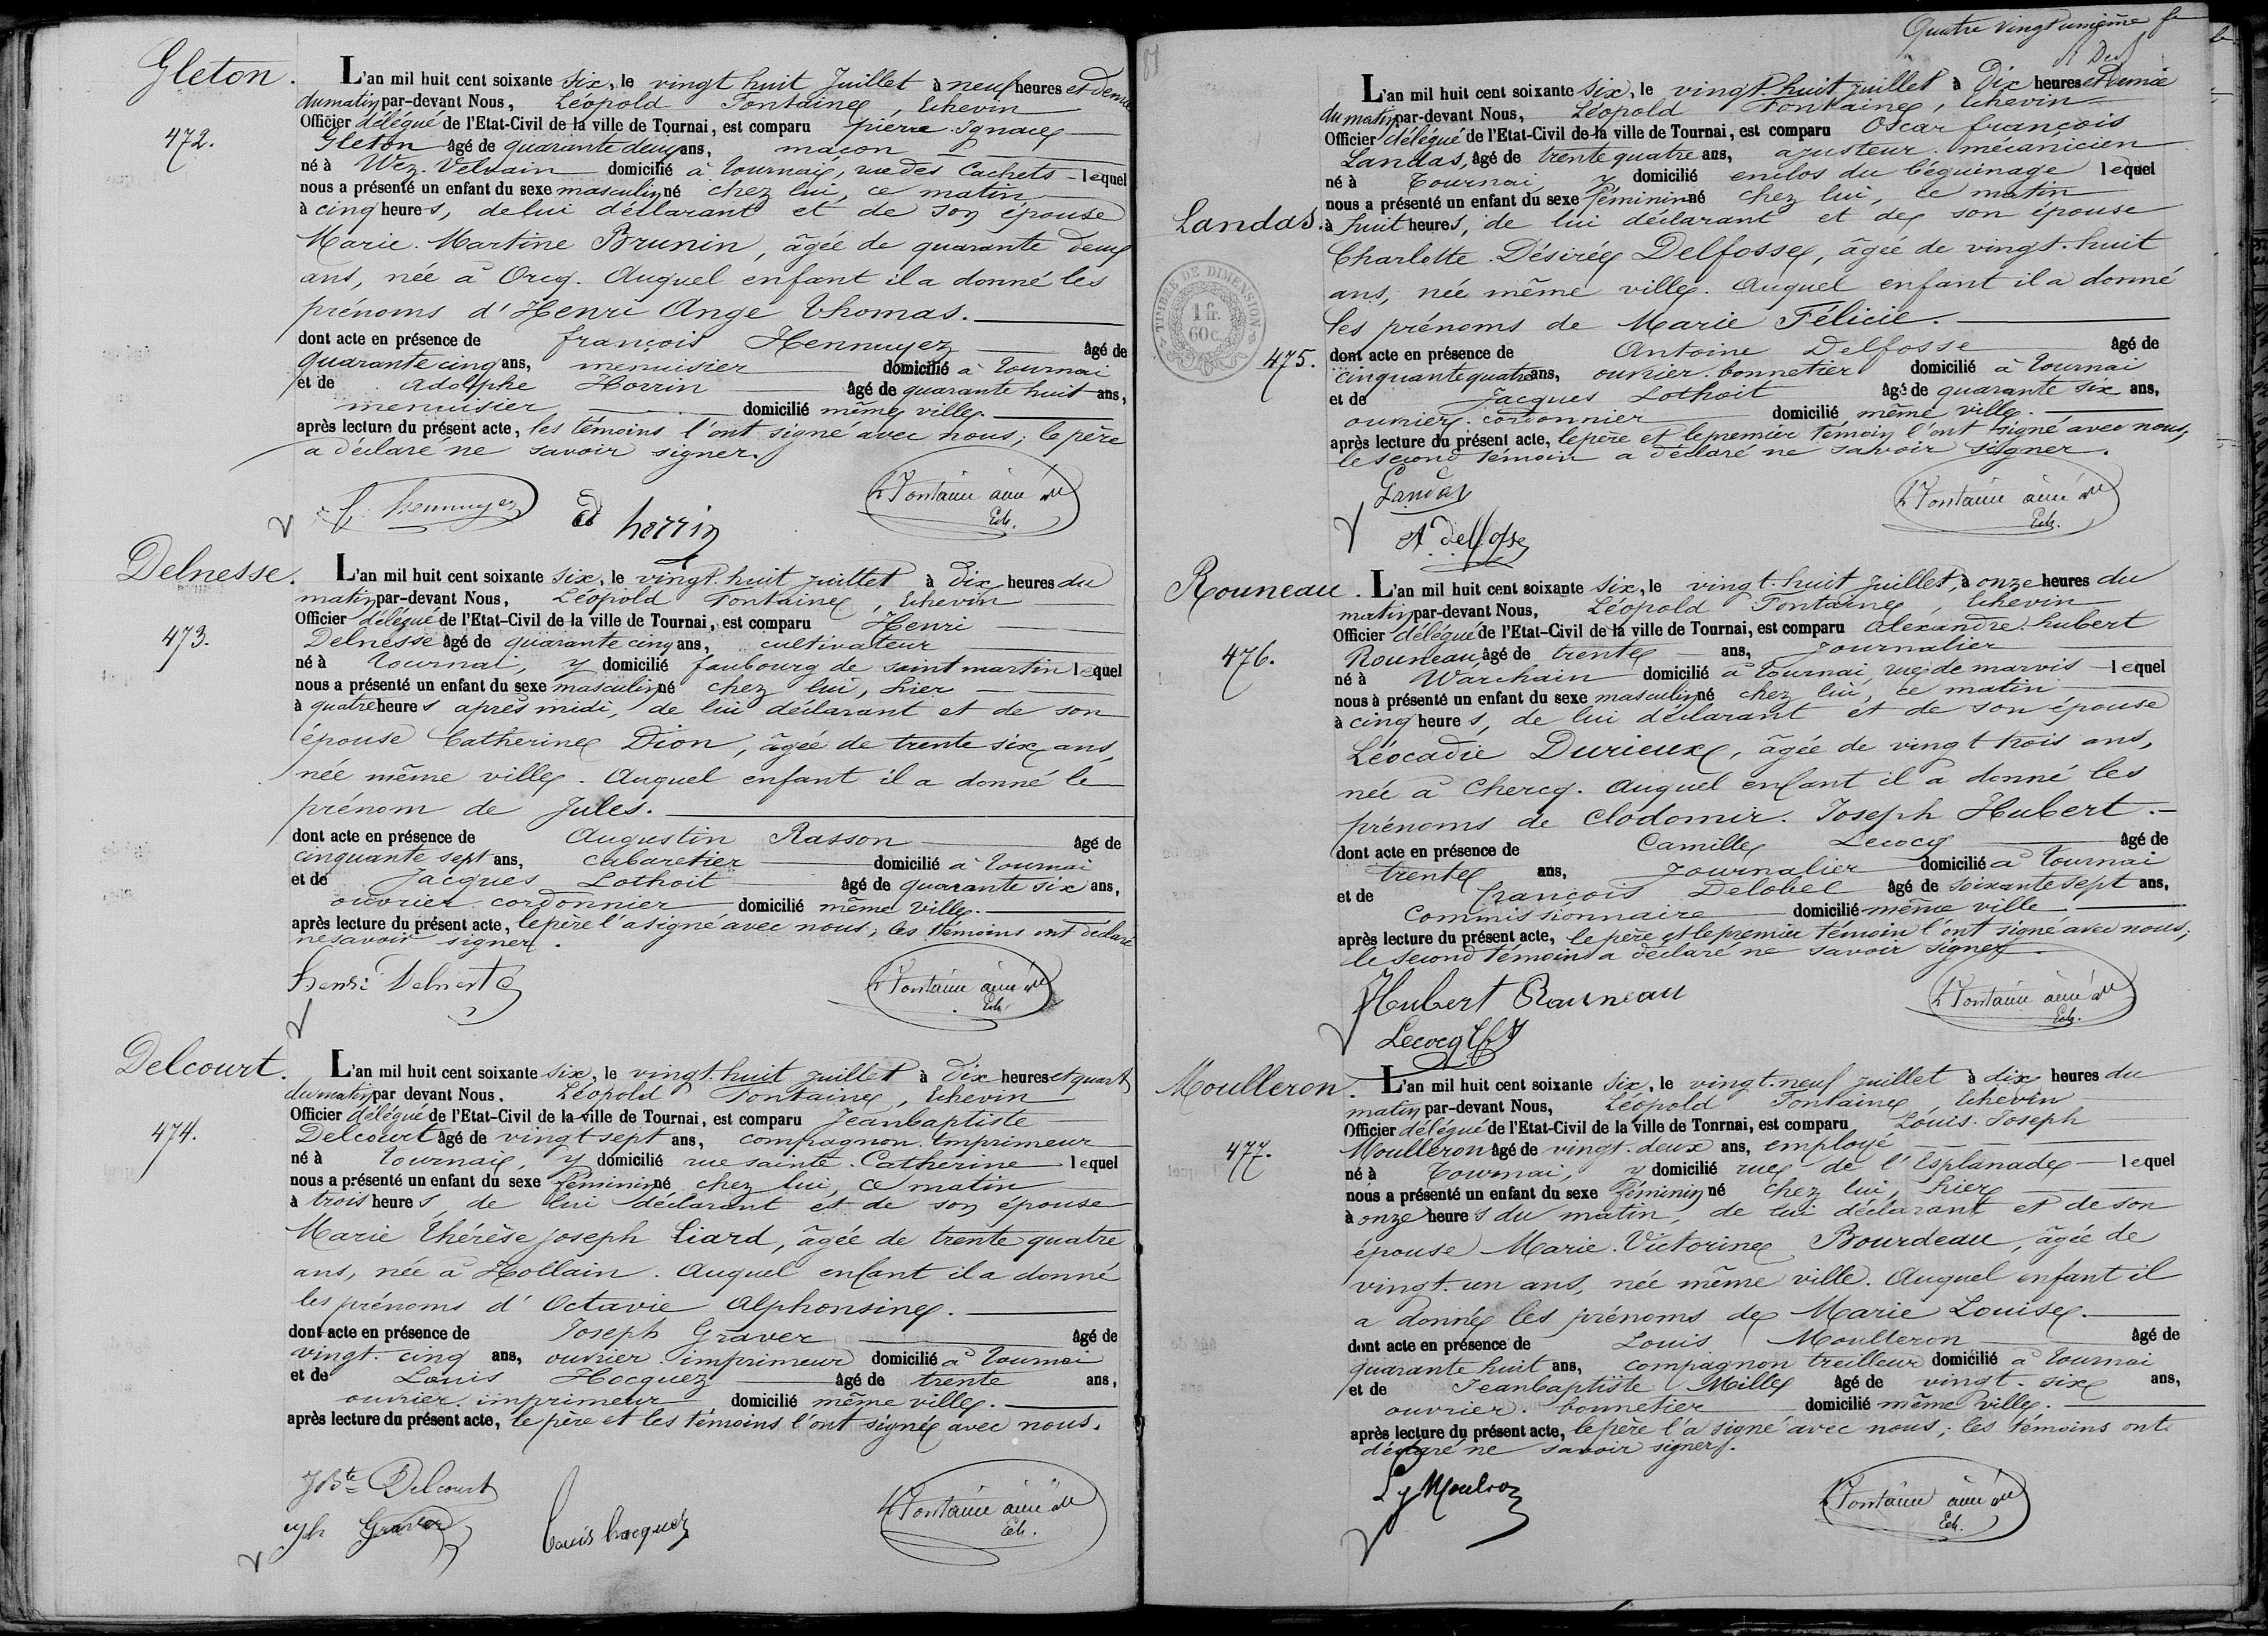 Gleton.
472.
L'an mil huit cent soixante six, le vingt huit Juillet à neuf heures et demie
du matin par-devant Nous, Léopold Fontaine, Echevin
Officier délégué de l'Etat-Civil de la ville de Tournai, est comparu pierre Ignace
Gleton âgé de quarante deux ans, maçon
né à Wez-Velvain domicilié à Tournai, rue des Cachets lequel
nous a présenté un enfant du sexe masculin né chez lui, ce matin
à cinq heures, de lui déclarant et de son épouse
Marie-Martine Brunin, âgée de quarante deux
ans, née à Orcq. Auquel enfant il a donné les
prénoms d'Henri Ange Thomas.
dont acte en présence de françois Hennuyez âgé de
quarante cinq ans, menuisier domicilié à Tournai
et de adolphe Horrin âgé de quarante huit ans,
menuisier domicilié même ville.
après lecture du présent acte, les témoins l'ont signé avec nous; le père
a déclaré ne savoir signer.
f. hennuyez ad horrin L Fontaine ainé
Ech.
Delnesse.
473.
L'an mil huit cent soixante six, le vingt-huit juillet à dix heures du
matin par-devant Nous, Léopold Fontaine, Echevin
Officier délégué de l'Etat-Civil de la ville de Tournai, est comparu Henri
Delnesse âgé de quarante cinq ans, cultivateur
né à Tournai, y domicilié faubourg de saint martin lequel
nous a présenté un enfant du sexe masculin né chez lui, hier
à quatre heures après midi, de lui déclarant et de son
épouse Catherine Dion, âgée de trente six ans,
née même ville. Auquel enfant il a donné le
prénom de Jules.
dont acte en présence de Augustin Rasson âgé de
cinquante sept ans, cabaretier domicilié à Tournai
et de Jacques Lothoit âgé de quarante six ans,
ouvrier cordonnier domicilié même ville.
après lecture du présent acte, le père l'a signé avec nous; les témoins ont déclaré
ne savoir signer.
henri Delnest L Fontaine ainé
Ech.
Delcourt.
474.
L'an mil huit cent soixante six, le vingt-huit juillet à dix heures et quart
du matin par devant Nous. Léopold Fontaine, Echevin
Officier délégué de l'Etat-Civil de la ville de Tournai, est comparu Jeanbaptiste
Delcourt âgé de vingt sept ans, compagnon-imprimeur
né à Tournai, y domicilié rue sainte-Catherine lequel
nous a présenté un enfant du sexe féminin né chez lui, ce matin
à trois heures, de lui déclarant et de son épouse
Marie Thérèse Joseph Liard, âgée de trente quatre
ans, née à Hollain. Auquel enfant il a donné
les prénoms d'Octavie Alphonsine.
dont acte en présence de Joseph Graver âgé de
vingt-cinq ans, ouvrier-imprimeur domicilié à Tournai
et de Louis Hocquez âgé de trente ans,
ouvrier-imprimeur domicilié même ville.
après lecture du présent acte, le père et les témoins l'ont signé avec nous.
J Bte Delcourt
Jph Graver Louis hocquez L Fontaine ainé
Ech.
Quatre vingt unième
Landas.
475.
TIMBRE DE DIMENSION
1 fr.
60 c.
L'an mil huit cent soixante six, le vingt-huit juillet à Dix heures et Demie
du matin par-devant Nous, Léopold Fontaine, Echevin
Officier délégué de l'Etat-Civil de la ville de Tournai, est comparu Oscar françois
Landas, âgé de trente quatre ans, ajusteur-mécanicien
né à Tournai, y domicilié enclos du béguinage lequel
nous a présenté un enfant du sexe féminin né chez lui, ce matin
à huit heures, de lui déclarant et de son épouse
Charlotte-Désirée Delfosse, âgée de vingt-huit
ans, née même ville. Auquel enfant il a donné
les prénoms de Marie Félicie.
dont acte en présence de Antoine Delfosse âgé de
cinquante quatre ans, ouvrier-bonnetier domicilié à Tournai
et de Jacques Lothoit âgé de quarante six ans,
ouvrier-cordonnier domicilié même ville.
après lecture du présent acte, le père et le premier témoin l'ont signé avec nous;
le second témoin a déclaré ne savoir signer.
Landas
A delfosse L Fontaine ainé
Ech.
Rouneau.
476.
L'an mil huit cent soixante six, le vingt-huit juillet, à onze heures du
matin par-devant Nous, Léopold Fontaine, Echevin
Officier délégué de l'Etat-Civil de la ville de Tournai, est comparu Alexandre-hubert
Rouneau âgé de trente ans, Journalier
né à Warchain domicilié à Tournai, rue de marvis lequel
nous à présenté un enfant du sexe masculin né chez lui, ce matin
à cinq heures, de lui déclarant et de son épouse
Léocadie Durieux, âgée de vingt trois ans,
née à Chercq. Auquel enfant il a donné les
prénoms de Clodomir-Joseph Hubert.
dont acte en présence de Camille Lecocq âgé de
trente ans, Journalier domicilié à Tournai
et de François Delobel âgé de soixante sept ans,
Commissionnaire domicilié même ville
après lecture du présent acte, le père et le premier témoin l'ont signé avec nous;
le second témoins a déclaré ne savoir signer.
Hubert Rauneau
Lecocq L Fontaine ainé
Ech.
Moulleron.
477.
L'an mil huit cent soixante six, le vingt-neuf juillet à dix heures du
matin par-devant Nous, Léopold Fontaine, Echevin
Officier délégué de l'Etat-Civil de la ville de Tonrnai, est comparu Louis-Joseph
Moulleron âgé de vingt-deux ans, employé
né à Tournai, y domicilié rue de l'Esplanade lequel
nous a présenté un enfant du sexe féminin né chez lui, hier
à onze heures du matin, de lui déclarant et de son
épouse Marie-Victorine Bourdeau, âgée de
vingt-un ans, née même ville. Auquel enfant il
a donné les prénoms de Marie Louise.
dont acte en présence de Louis Moulleron âgé de
quarante huit ans, compagnon treilleur domicilié à Tournai
et de Jeanbaptiste Mille âgé de vingt-six ans,
ouvrier-bonnetier domicilié même ville.
après lecture du présent acte, le père l'a signé avec nous; les témoins ont
déclaré ne savoir signer.
L J Moulron L Fontaine ainé
Ech.